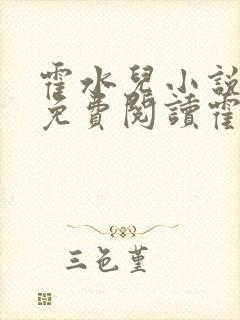 霍水兒小說
免費閱讀霍
三色堇